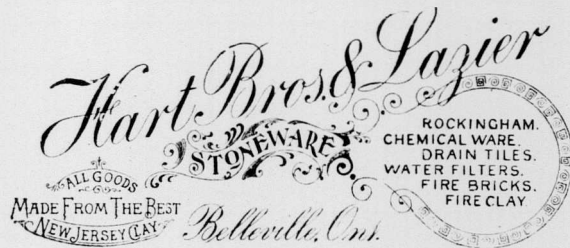 Hart Bros. & Lazier
STONEWARE
ROCKINGHAM.
CHEMICAL WARE.
DRAIN TILES.
WATER FILTERS.
FIRE BRICKS.
FIRE CLAY
ALL GOODS
MADE FROM THE BEST
NEW JERSEY CLAY
Belleville, Ont.